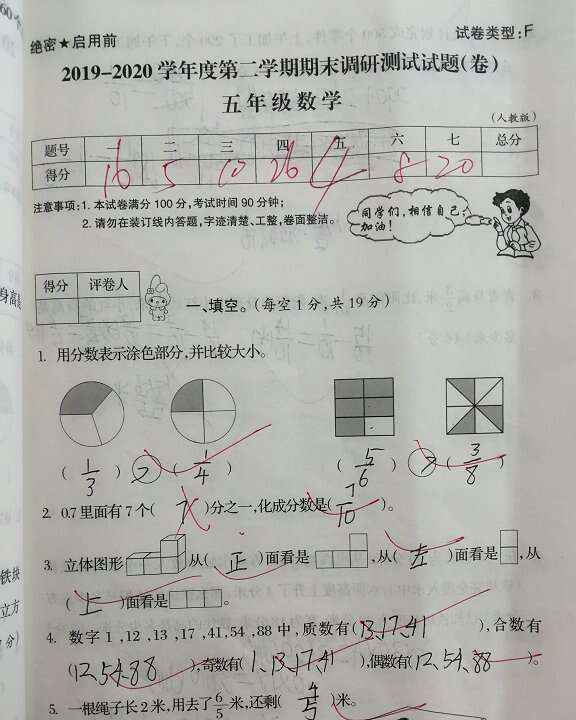 绝密★启用前
试卷类型:F
2019-2020学年度第二学期期末调研测试试题(卷)
五年级数学
(人教版)
题号 一 二 三 四 五 六 七 总分
得分 16 5 10 26 4 8 20
注意事项:1.本试卷满分100分,考试时间90分钟;
2.请勿在装订线内答题,字迹清楚、工整,卷面整洁。
同学们,相信自己,
加油!
得分 评卷人
一、填空。(每空1分,共19分)
1. 用分数表示涂色部分,并比较大小。
( 1/3 ) > ( 1/4 ) ( 5/6 ) > ( 3/8 )
2. 0.7里面有7个( )分之一,化成分数是( 7/10 )。
3. 立体图形 从( 正 )面看是 ,从( 左 )面看是 ,从
( 上 )面看是 。
4. 数字1,12,13,17,41,54,88中,质数有(13,17,41),合数有
(12,54,88),奇数有(1、13,17,41),偶数有(12,54,88)。
5. 一根绳子长2米,用去了6/5米,还剩( 4/5 )米。